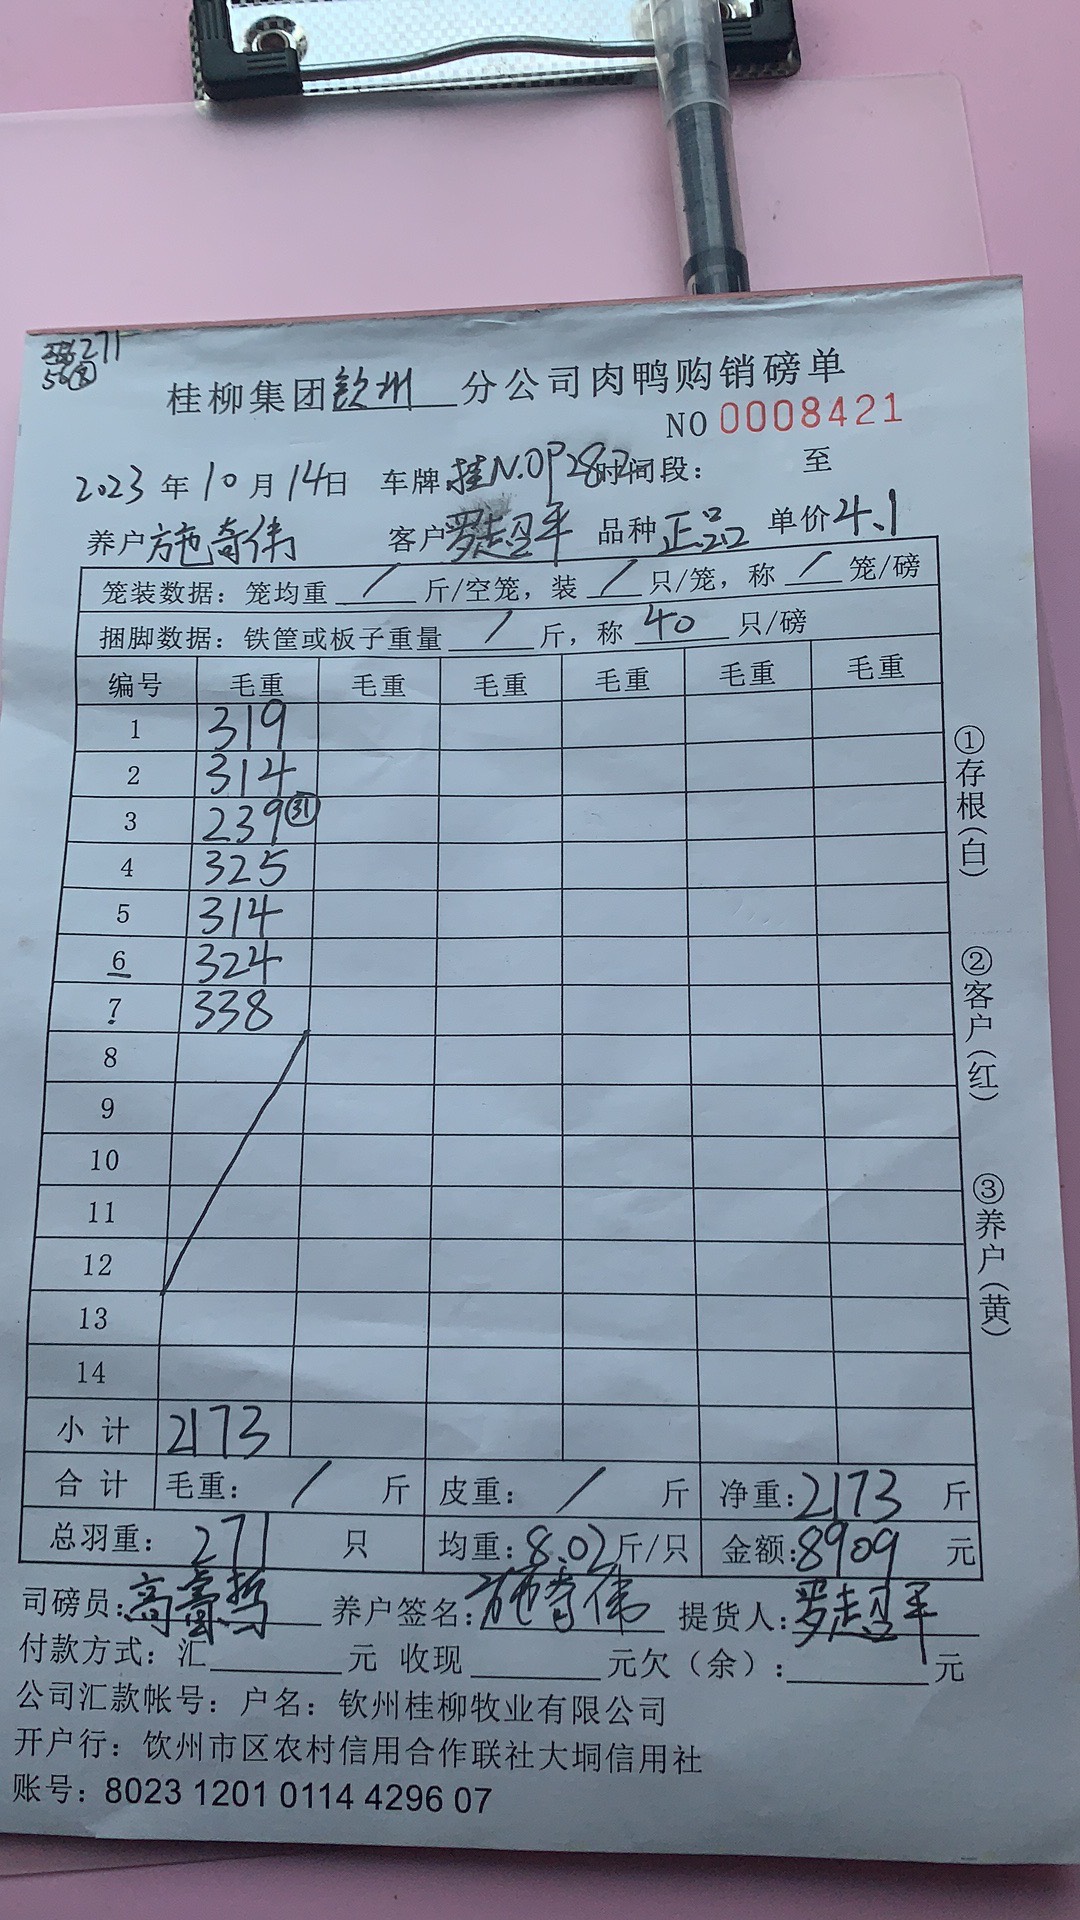 271
56
桂柳集团钦州分公司肉鸭购销磅单
NO 0008421
2023年10月14日 车牌桂N.0P282时间段： 至
养户施奇伟 客户罗超平 品种正品 单价4.1
笼装数据：笼均重 / 斤/空笼，装 / 只/笼，称 / 笼/磅
捆脚数据：铁筐或板子重量 / 斤，称 40 只/磅
编号 毛重 毛重 毛重 毛重 毛重 毛重
1 319
2 314
3 239 ㉛
4 325
5 314
6 324
7 338
8
9
10
11
12
13
14
小计 2173
合计 毛重： / 斤 皮重： / 斤 净重：2173 斤
总羽重： 271 只 均重：8.02斤/只 金额：8909 元
司磅员： 养户签名：施奇伟 提货人：罗超平
付款方式：汇 元 收现 元欠（余）： 元
公司汇款帐号：户名：钦州桂柳牧业有限公司
开户行：钦州市区农村信用合作联社大垌信用社
账号：8023 1201 0114 4296 07
①存根（白）
②客户（红）
③养户（黄）